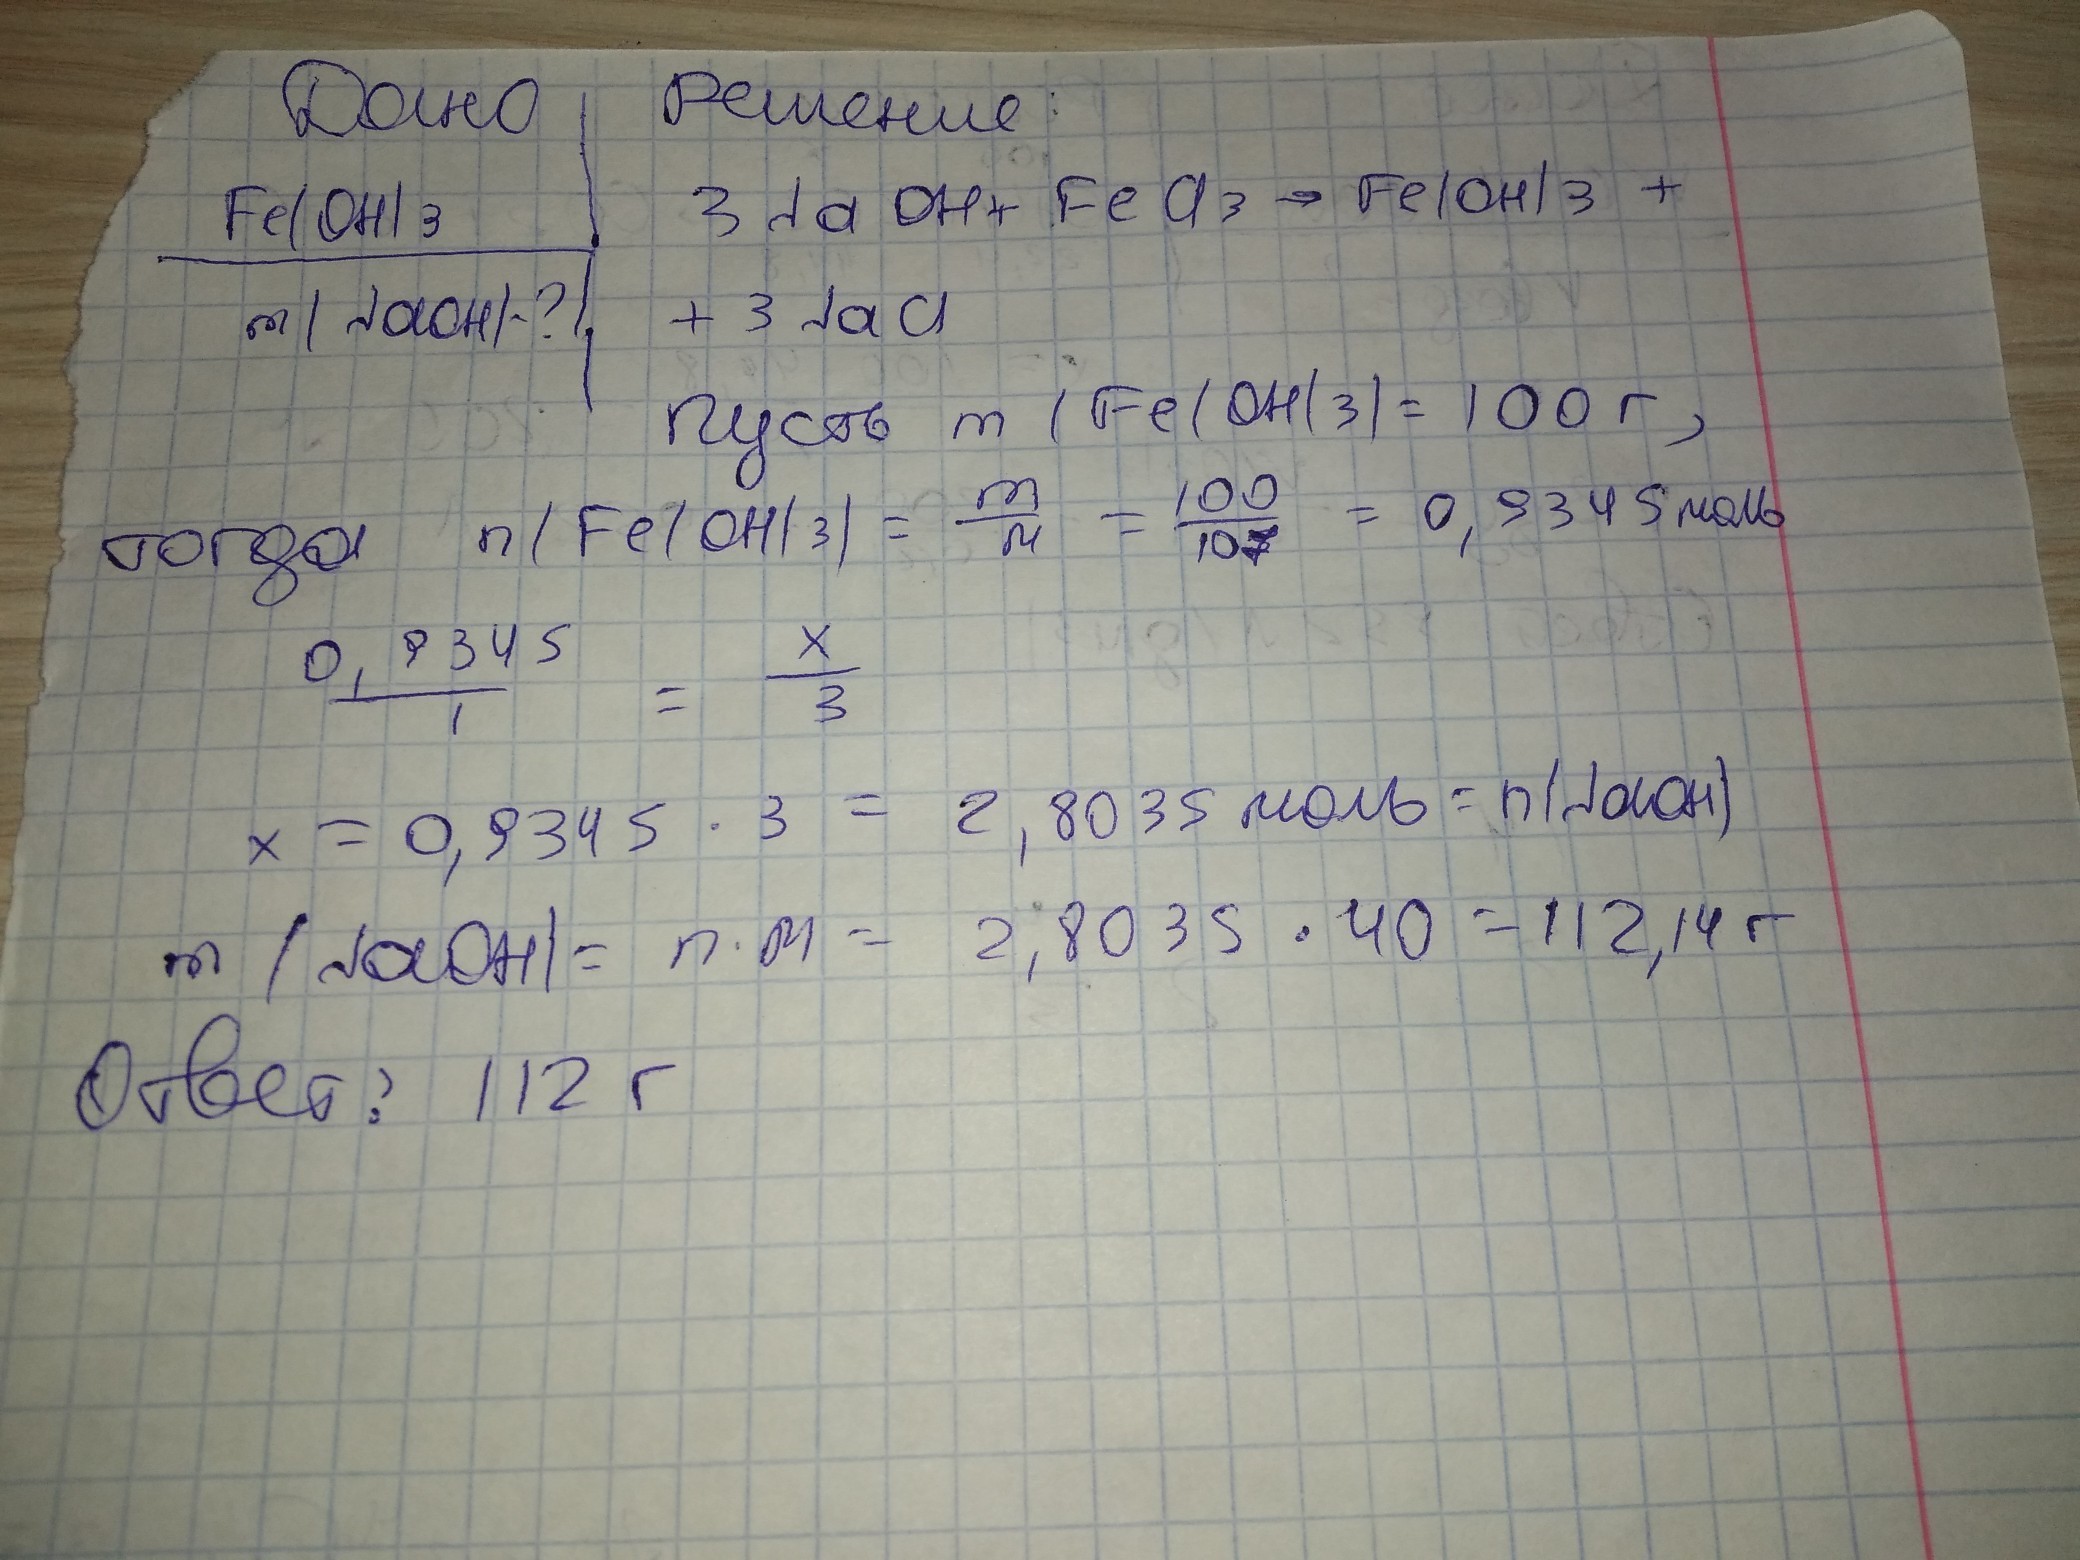 Дано Решение:
Fe(OH)3 3 NaOH + FeCl3 → Fe(OH)3 +
m(NaOH)-? + 3 NaCl
Пусть m (Fe(OH)3) = 100 г,
тогда n(Fe(OH)3) = m/M = 100/107 = 0,9345 моль
0,9345/1 = x/3
x = 0,9345 · 3 = 2,8035 моль = n(NaOH)
m (NaOH) = n · M = 2,8035 · 40 = 112,14 г
Ответ: 112 г